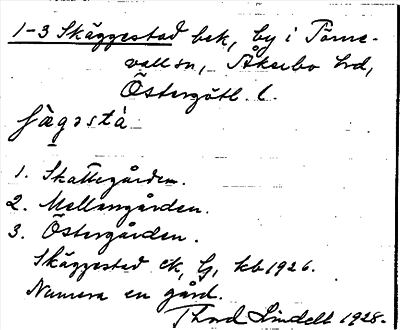 1-3 Skäggestad bek, by i Törne-
valla sn, Åkerbo hd,
Östergötl. l.
ʃàgəstà
1. Skattegården.
2. Mellangården.
3. Östergården.
Skäggestad ek, G, kb 1926.
Numera en gård.
Thord Lindell 1928.